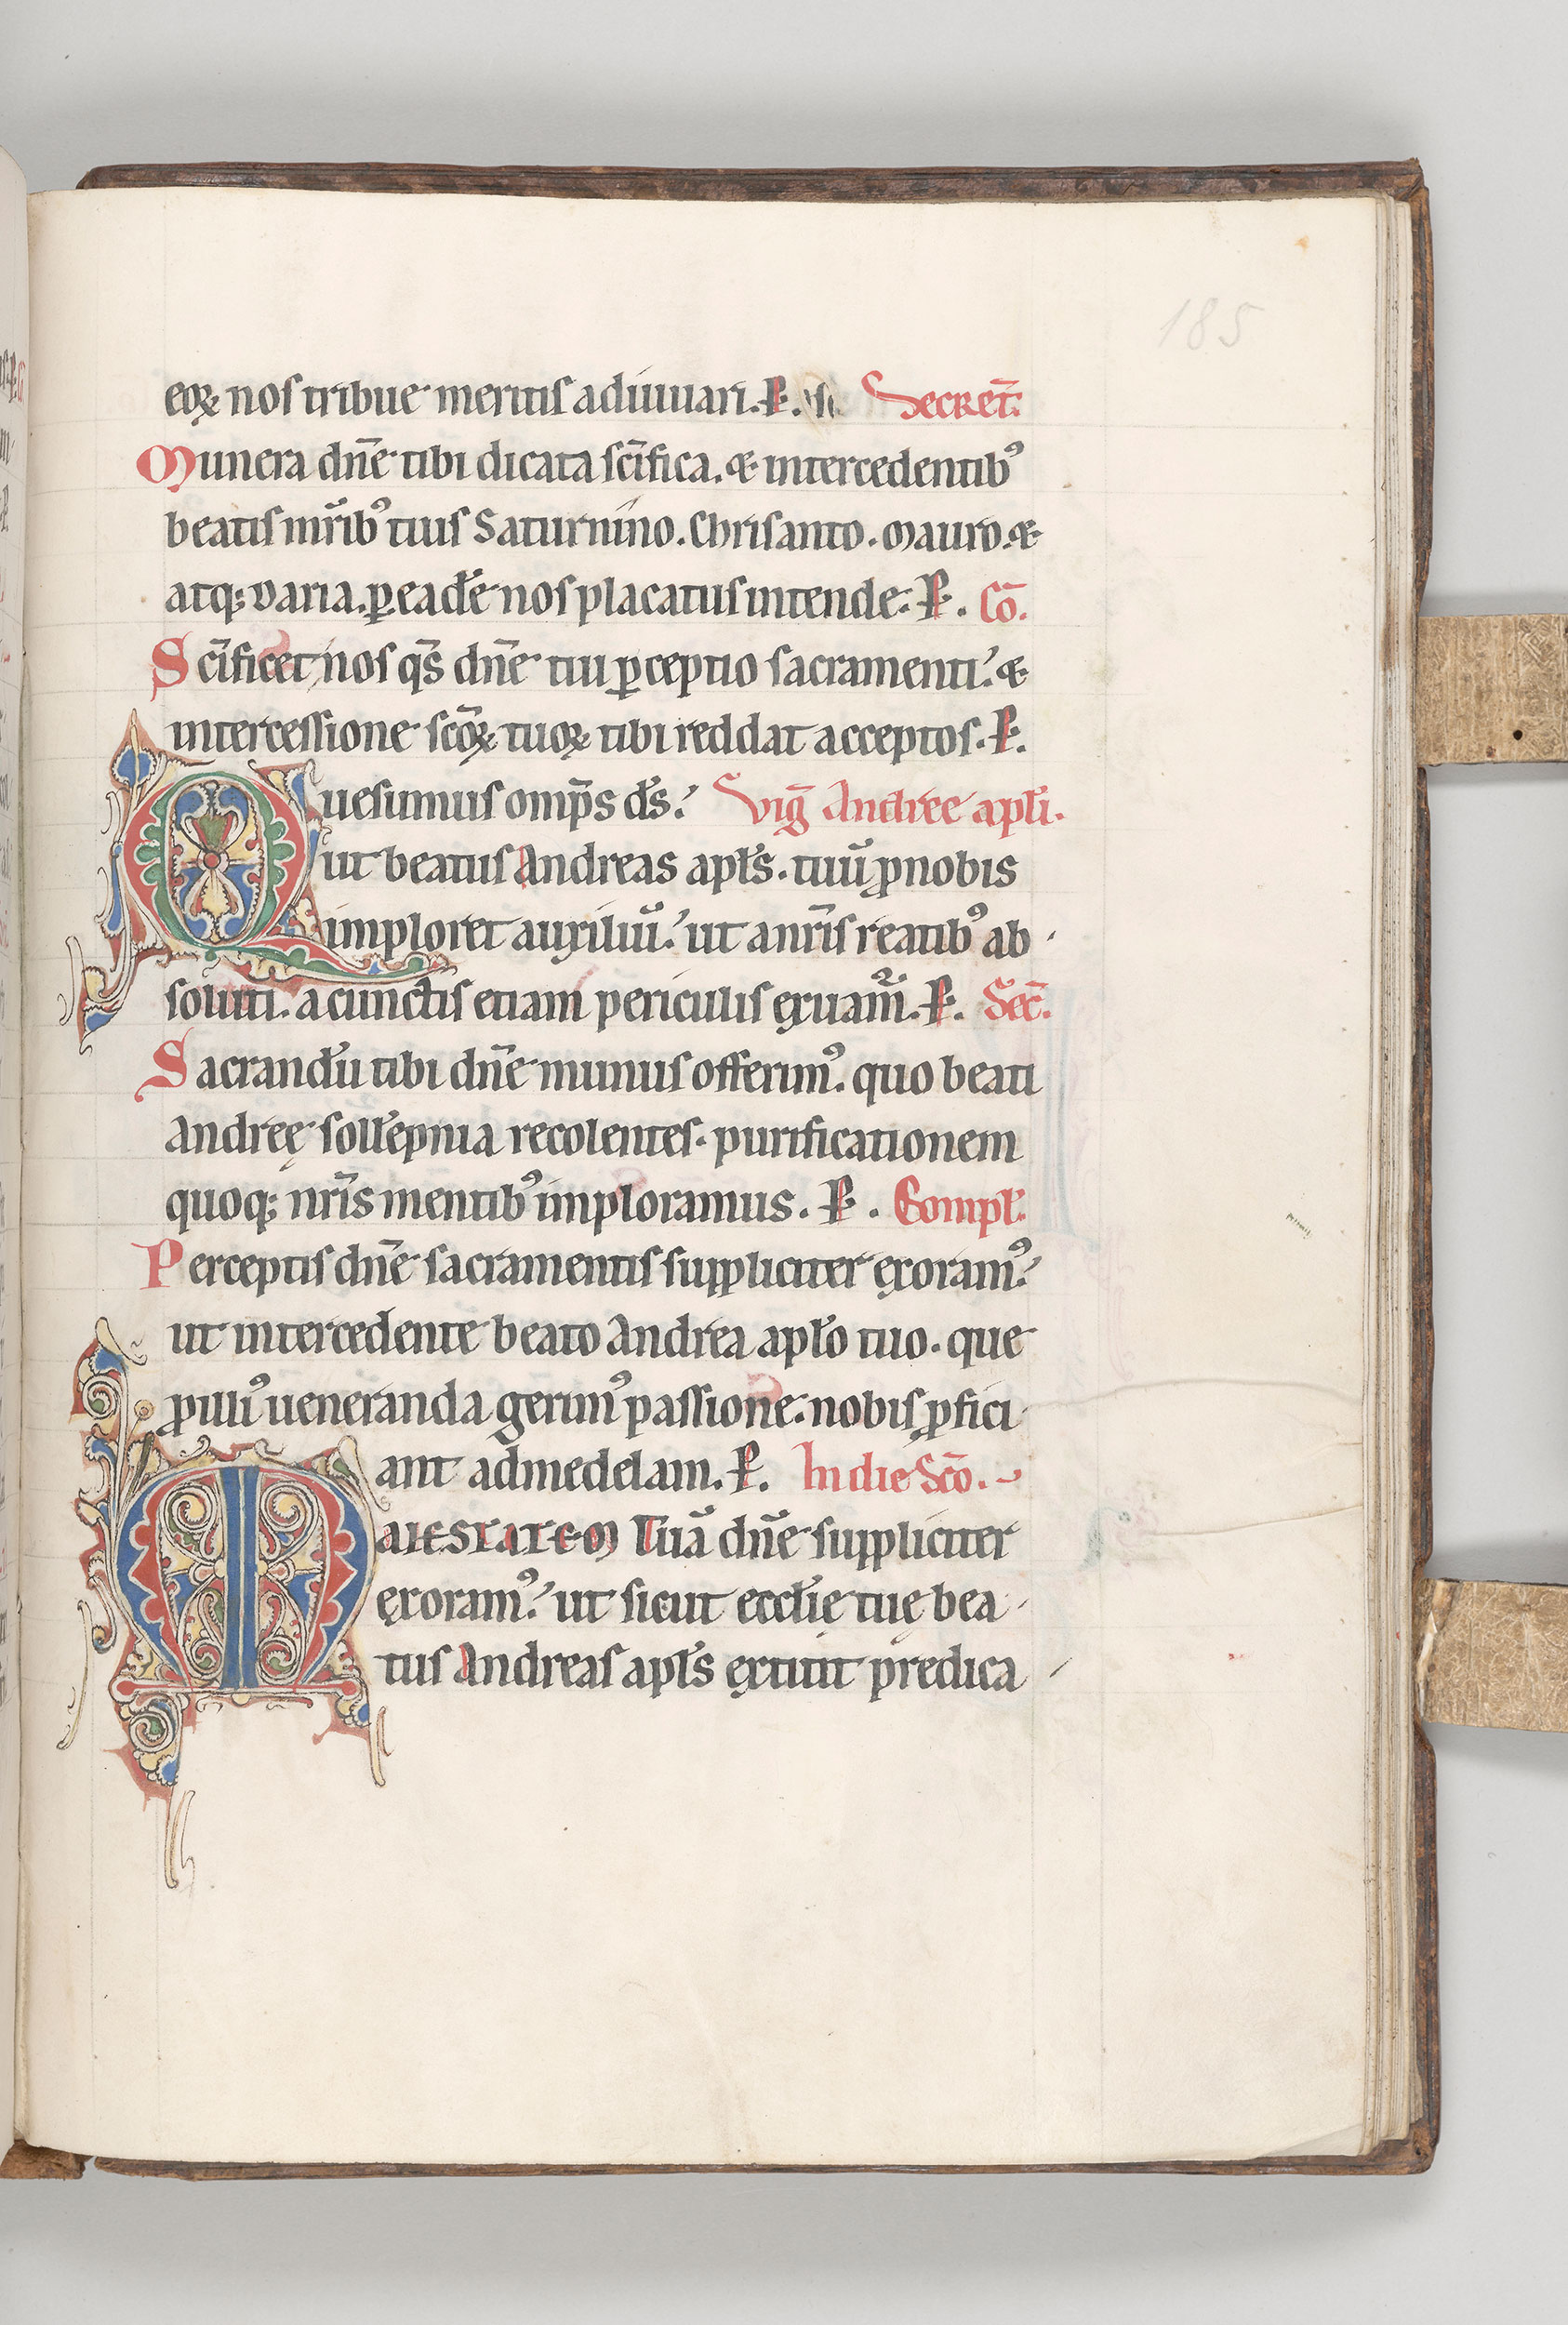 185
eoꝝ nos tribue meritis adiuuari. P. Secret̄:
Munera dn̄e tibi dicata sc̄ifica. & intercedentibꝰ
beatis mr̄ibꝰ tuis Saturnino. Chrisanto. Mauro. &
atq; Daria. ꝑ eadē nos placatus intende: P. Cō.
Sc̄ificet nos qs̄ dn̄e tui ꝑceptio sacramenti: &
intercessione sc̄oꝝ tuoꝝ tibi reddat acceptos. P.
Quesumus omp̄s ds̄: Viḡ Andree apl̄i.
ut beatus Andreas apl̄s. tuū ꝓ nobis
imploret auxiliū: ut a nr̄is reatibꝰ ab
soluti. a cunctis etiam periculis exuam᷑. P. Sec̄.
Sacrandū tibi dn̄e munus offerimꝰ. quo beati
Andreę sollēpnia recolentes. purificationem
quoq; nr̄is mentibꝰ imploramus. P. Compl̄:
Perceptis dn̄e sacramentis suppliciter exoramꝰ:
ut intercedente beato Andrea apl̄o tuo. que
ꝓ illiꝰ ueneranda gerimꝰ passione. nobis ꝓfici
ant ad medelam. P. In die Sc̄o.
MAIESTATEM Tuā dn̄e suppliciter
exoramꝰ: ut sicut eccl̄ię tuę bea
tus Andreas apl̄s extitit predica